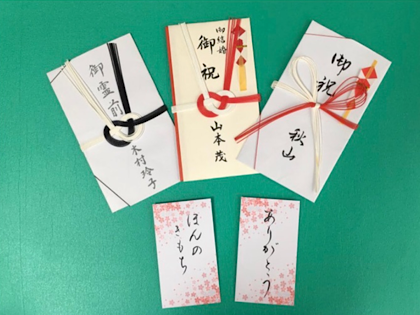 御霊前
木村玲子
御結婚
御祝
山本茂
御祝
秋山
ほんの
きもち
ありがとう